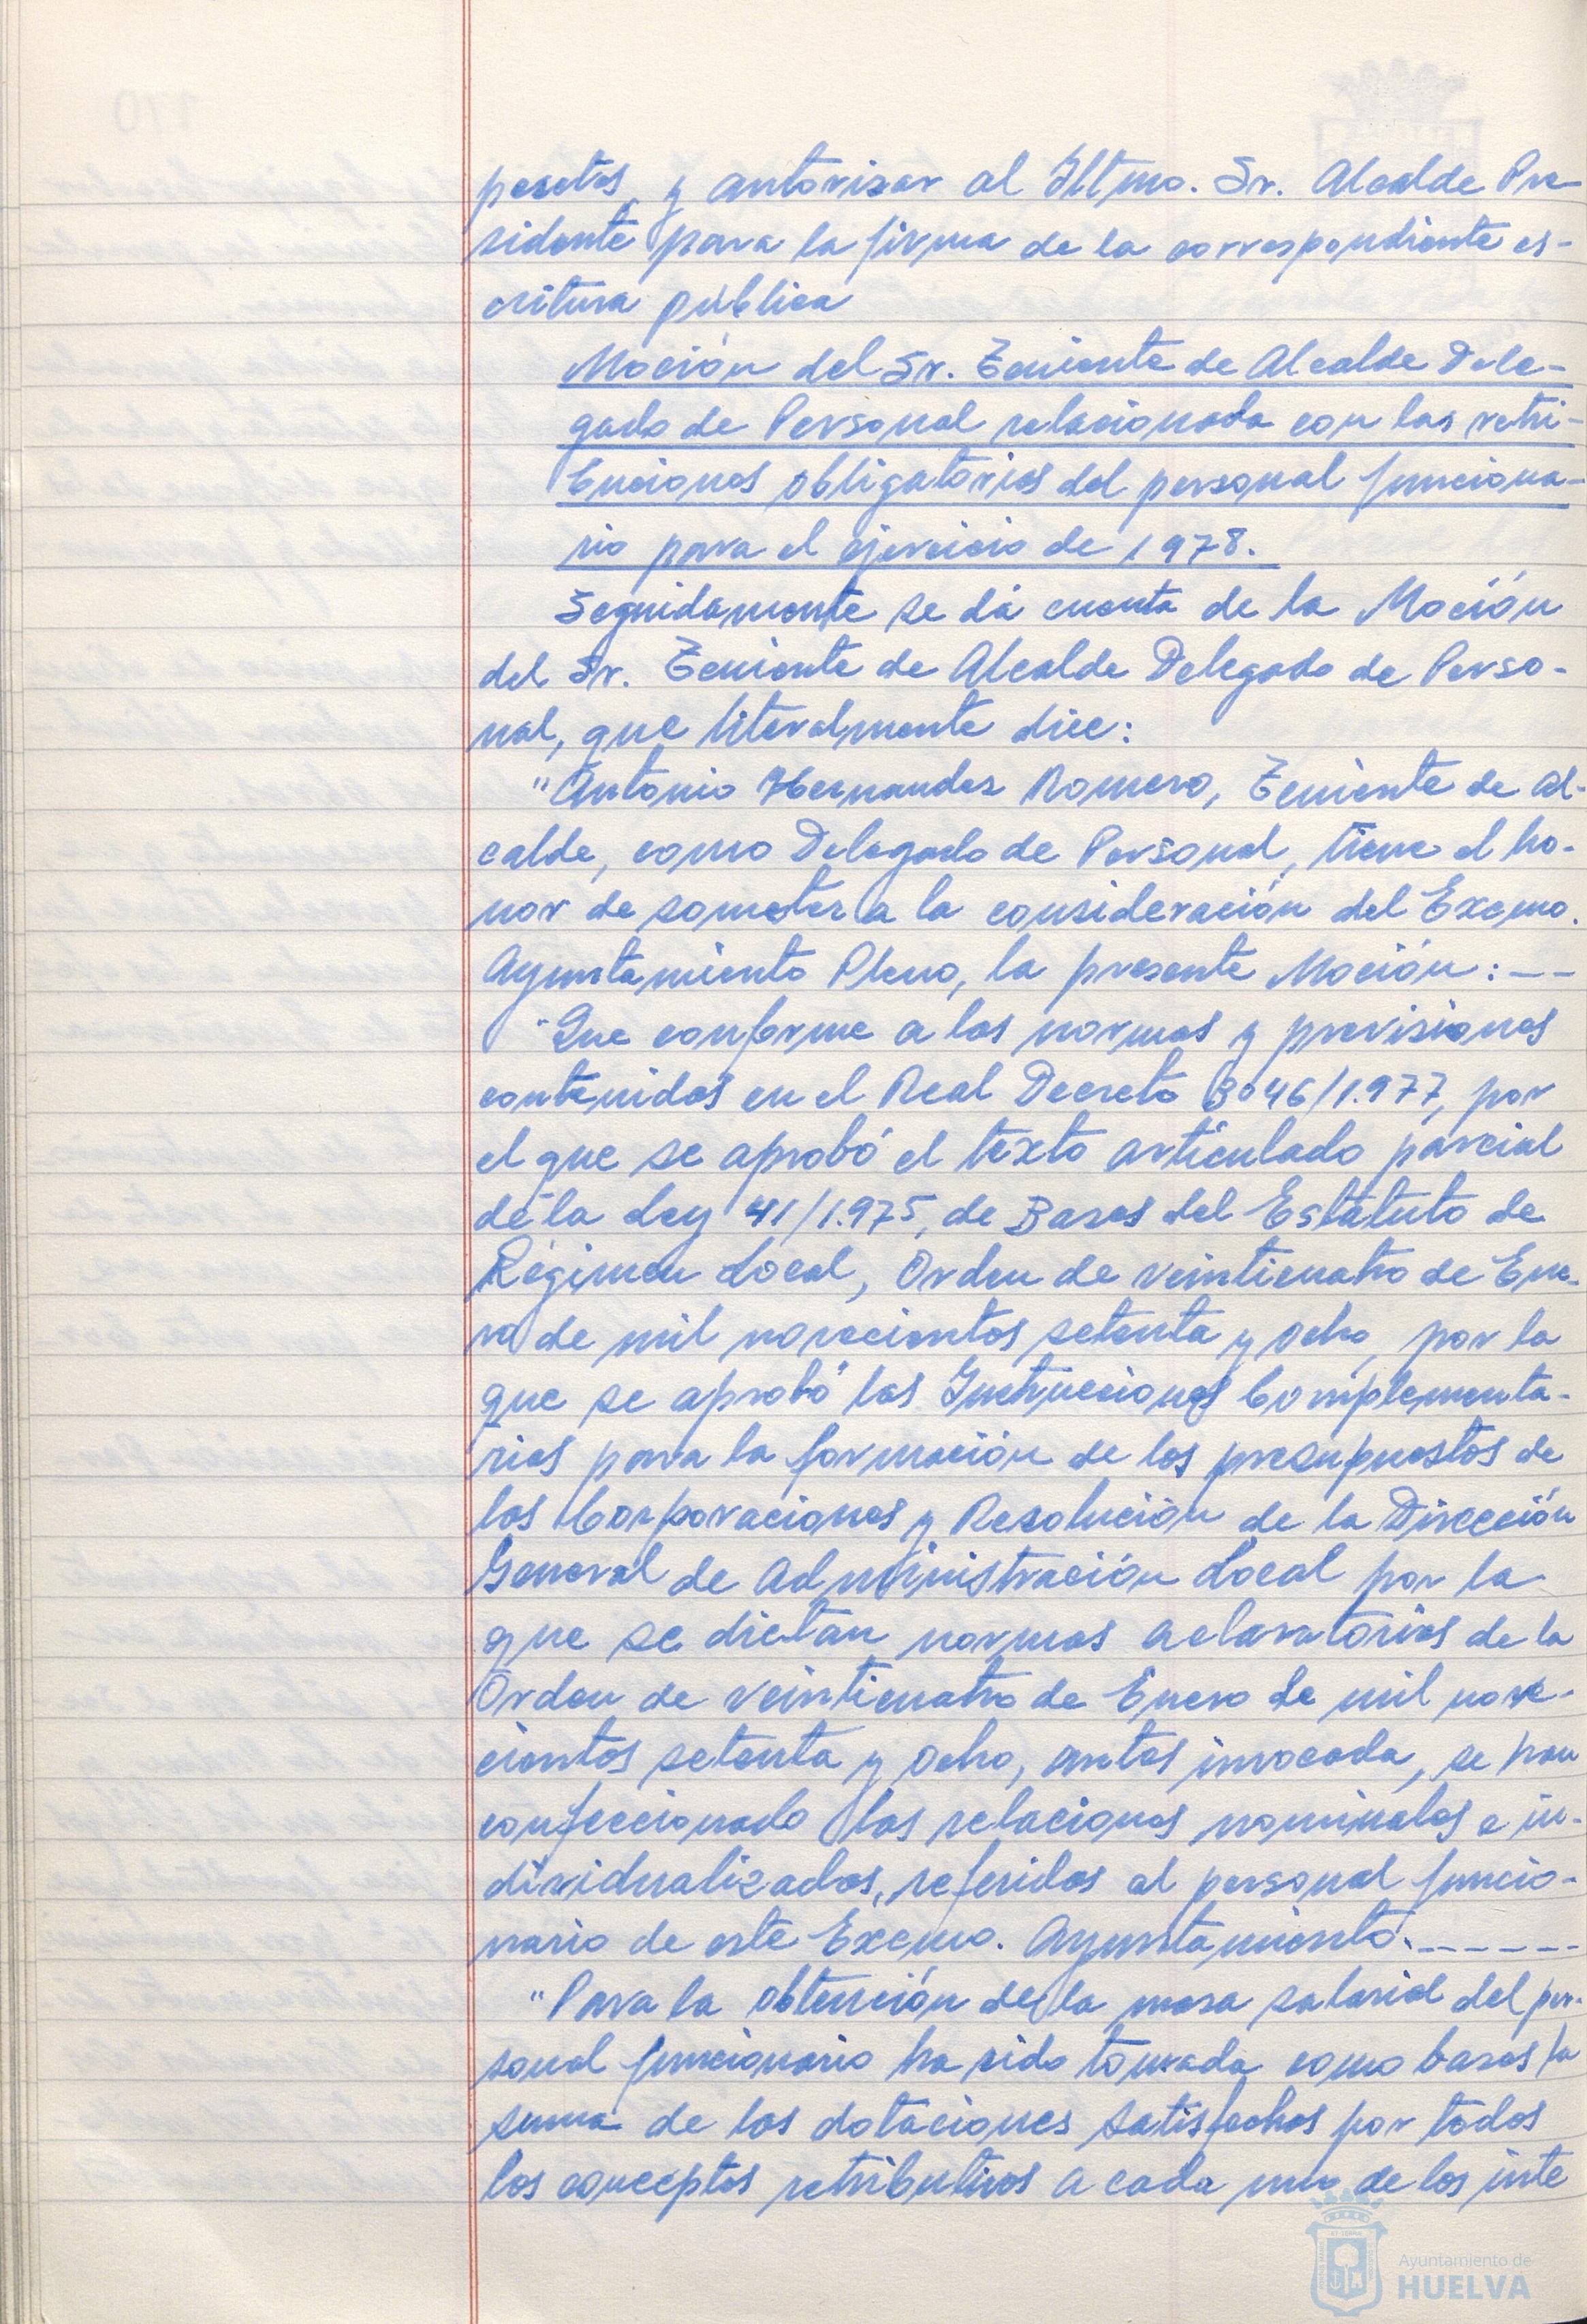 pesetas, y autorizar al Iltmo. Sr. Alcalde Pre-
sidente para la firma de la correspondiente es-
critura pública
Moción del Sr. Teniente de Alcalde Dele-
gado de Personal relacionada con las retri-
buciones obligatorias del personal funciona-
rio para el ejercicio de 1978.
Seguidamente se dá cuenta de la Moción
del Sr. Teniente de Alcalde Delegado de Perso-
nal, que literalmente dice:
"Antonio Hernandez Romero, Teniente de Al-
calde, como Delegado de Personal, tiene el ho-
nor de someter a la consideración del Excmo.
Ayuntamiento Pleno, la presente Moción: --
"Que conforme a las normas y previsiones
contenidas en el Real Decreto 3046/1.977, por
el que se aprobó el texto articulado parcial
de la Ley 41/1.975, de Bases del Estatuto de
Régimen Local, Orden de veinticuatro de Ene-
ro de mil novecientos setenta y ocho, por la
que se aprobó las Instrucciones Complementa-
rias para la formación de los presupuestos de
las Corporaciones y Resolución de la Dirección
General de Administración Local por la
que se dictan normas aclaratorias de la
Orden de veinticuatro de Enero de mil nove-
cientos setenta y ocho, antes invocada, se han
confeccionado las relaciones nominales e in-
dividualizadas, referidas al personal funcio-
nario de este Excmo. Ayuntamiento. ------
"Para la obtención de la masa salarial del per-
sonal funcionario ha sido tomada como bases la
suma de las dotaciones satisfechas por todos
los conceptos retributivos a cada uno de los inte
Ayuntamiento de
HUELVA